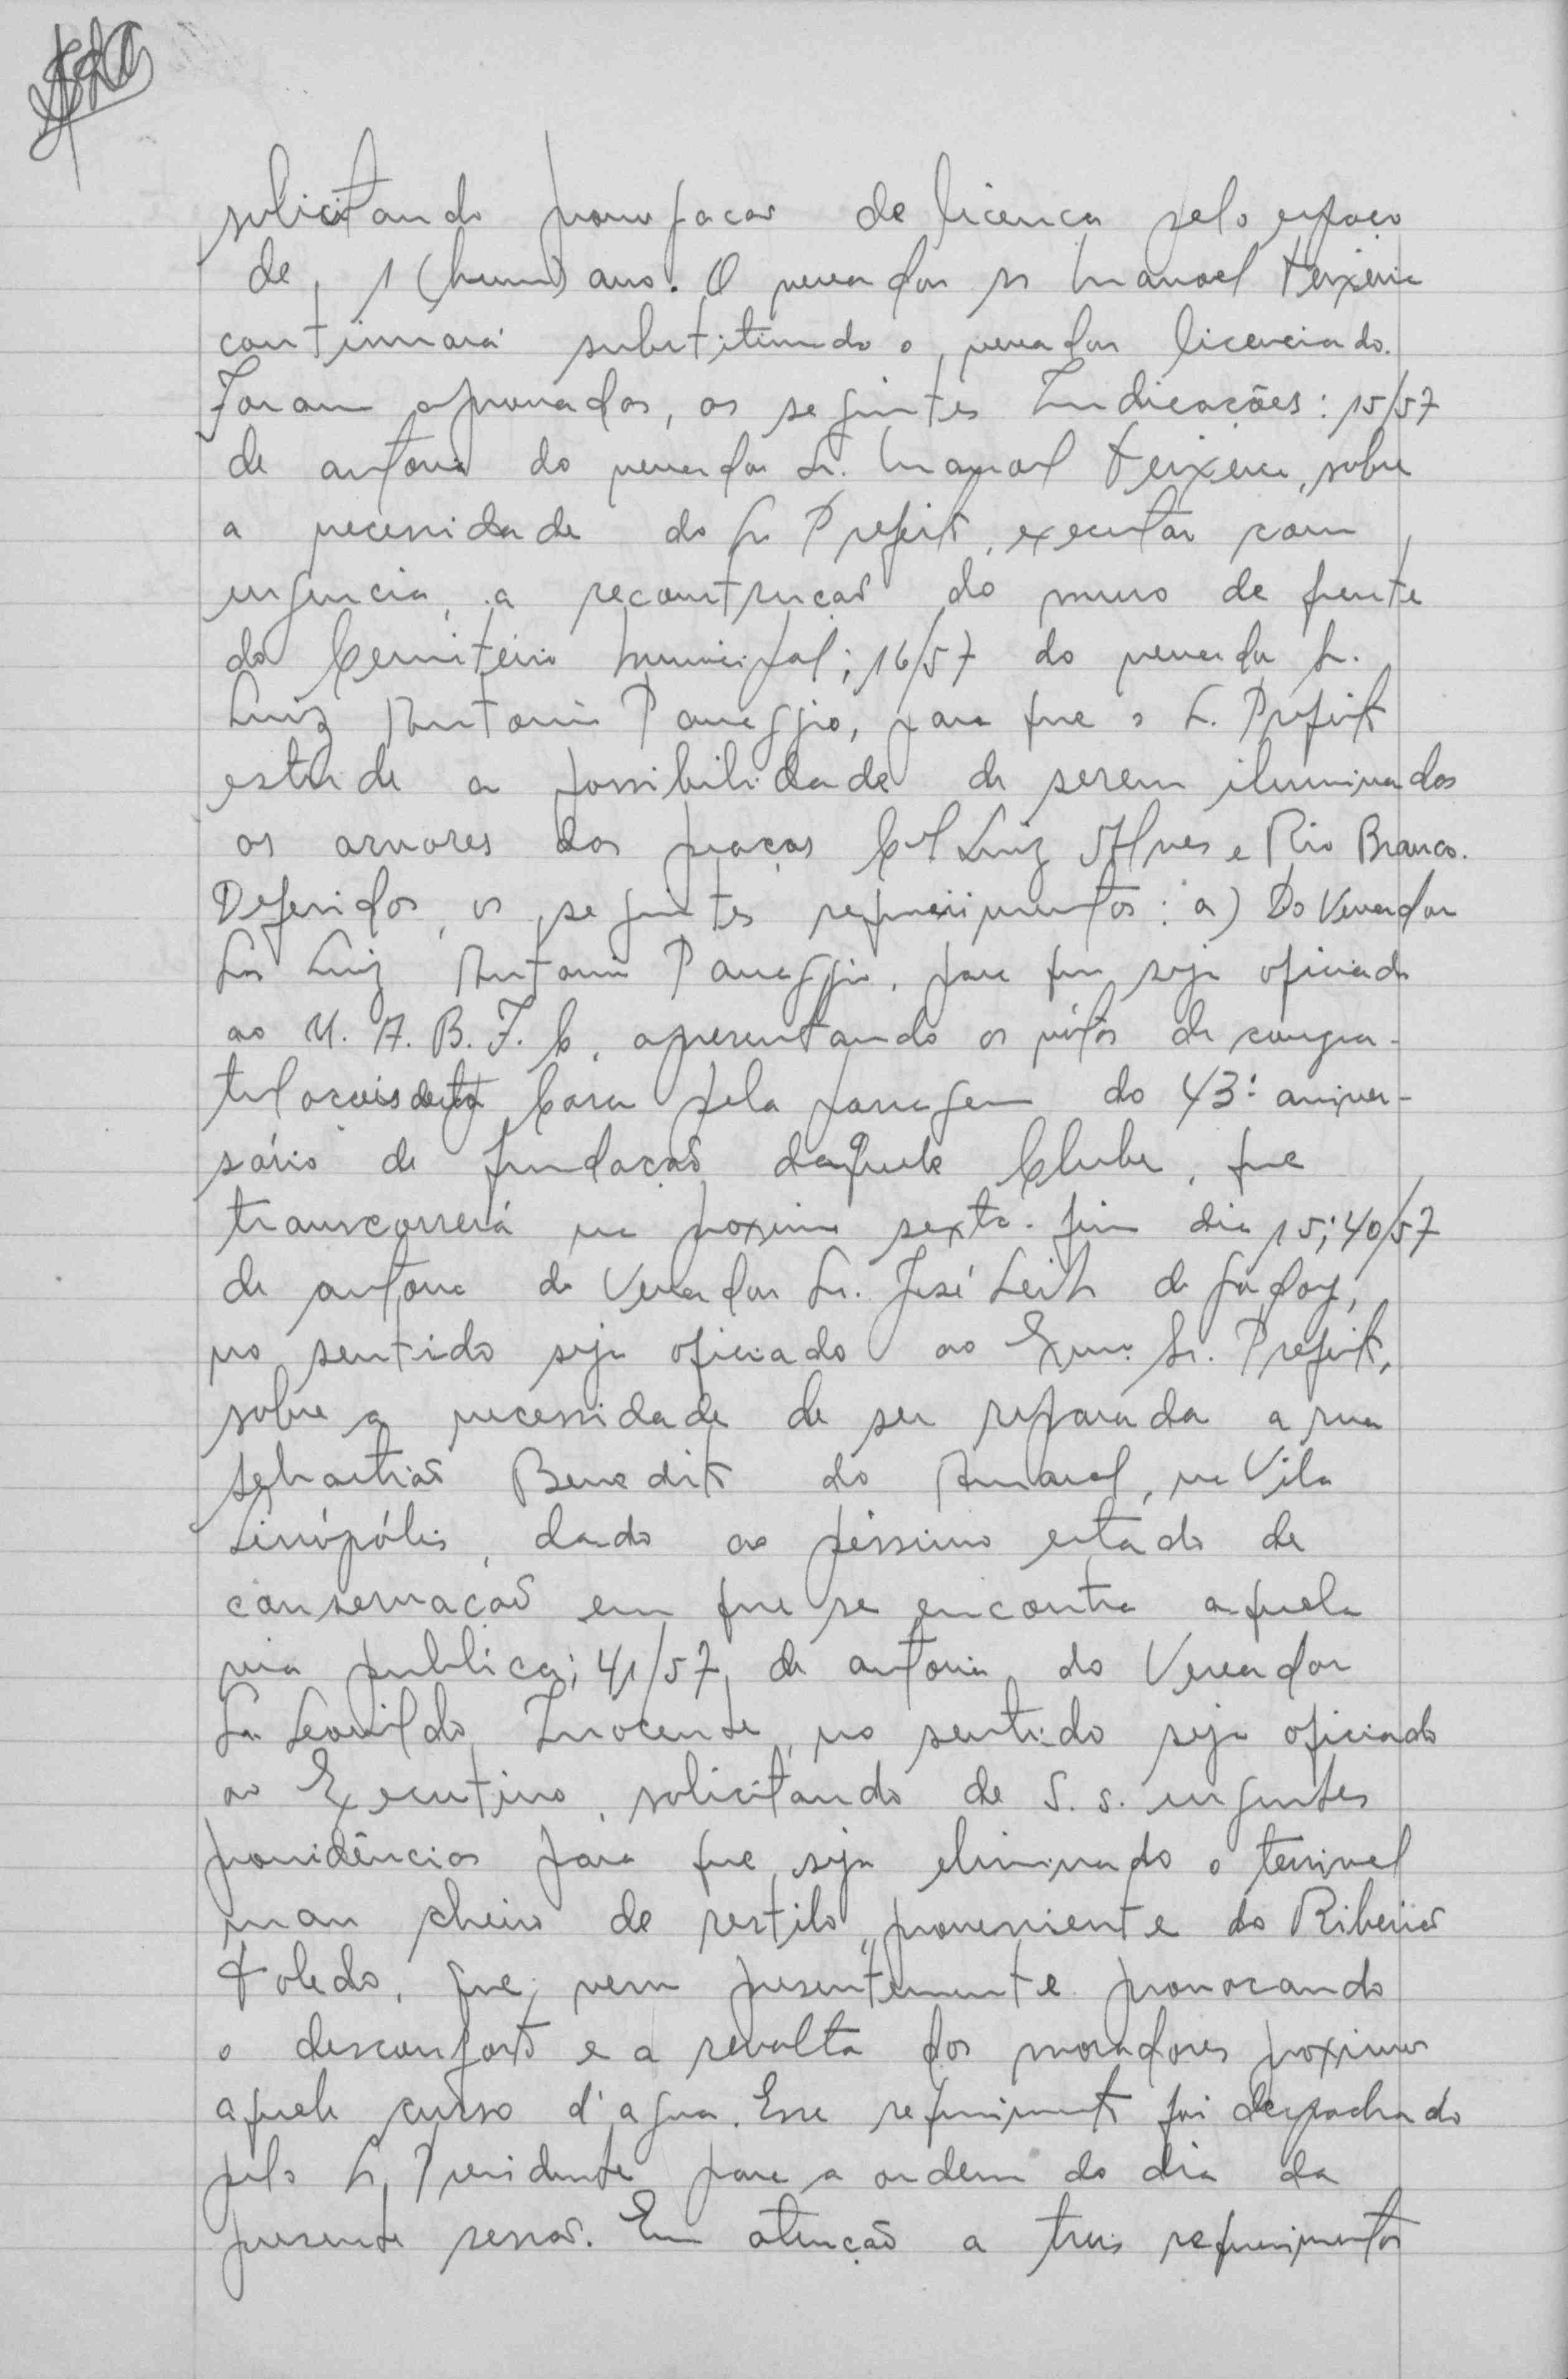 solicitando prorrogacão de licenca pelo espaço
de, 1 (hum) ano. O vereador sr Manoel Teixeira
continuará substituindo o vereador licenciado.
Foram aprovadas, as seguintes Indicações: 15/57
de autoria do vereador Sr. Manoel Teixeira, sobre
a necessidade do Sr Prefeito, executar com
urgencia, a reconstrucão do muro de frente
do Cemitério Municipal; 16/57 do vereador Sr.
Luiz Antonio Panaggio, para que o Sr. Prefeito
estude a possibilidade de serem iluminadas
as arvores das praças Cel Luiz Alves e Rio Branco.
Deferidos, os seguintes requerimentos: a) Do Vereador
Sr Luiz Antonio Panaggio, para que seja oficiado
ao U. A. B. F. C. apresentando os vótos de congra-
tulacões desta Casa pela passagem do 43º aniver-
sário de fundacão daquele Clube, que
transcorrerá na proxima sexta-feira dia 15; 40/57
de autoria do Vereador Sr. José Leite de Godoy,
no sentido seja oficiado ao Exmo. Sr. Prefeito,
sobre a necessidade de ser reparada a rua
Sebastião Benedito do Amaral, na Vila
Linópólis, dado ao péssimo estado de
conservacão em que se encontra aquela
via publica; 41/57, de autoria do Vereador
Sr Leonildo Inocente, no sentido seja oficiado
ao Executivo, solicitando de S. s. urgentes
providências para que seja eliminado o terrivel
mau cheiro de restilo, proveniente do Ribeirão
Toledo, que, vem presentemente provocando
o desconforto e a revolta dos moradores proximos
aquele curso d'agua. Esse requerimento foi despachado
pelo Sr. Presidente para a ordem do dia da
presente sessão. Em atenção a treis requerimentos